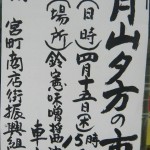 月山夕方の市
(日時)四月十五日(水)15時
(場所)鈴木味噌醤油
車
宮町商店街振興組